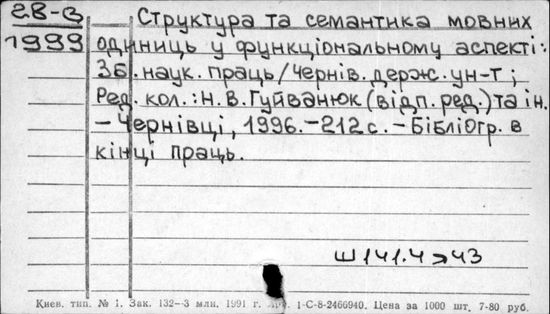 28-3 Структура та семантика мовних
1999 одиниць у функціональному аспекті:
Зб. наук. праць/Чернів. держ. ун-т;
Ред. кол.: Н. В. Гуйванюк (відп. ред.) та ін.
– Чернівці, 1996. – 212 с. – Бібліогр. в
кінці праць.
Ш141.4 я43
Киев. тип. № 1. Зак. 132—3 млн. 1991 г. 1-С-8-2466940. Цена за 1000 шт. 7-80 руб.